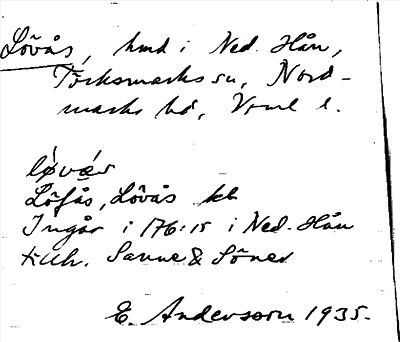 Lövås, hmd i Ned. Hån,
Töcksmarks sn, Nord-
marks hd, Vrml l.
lǿvǽs
Löfås, Lövås kb
Ingår i 176:15 i Ned. Hån
tillh. Sanne & Söner
E. Andersson 1935.